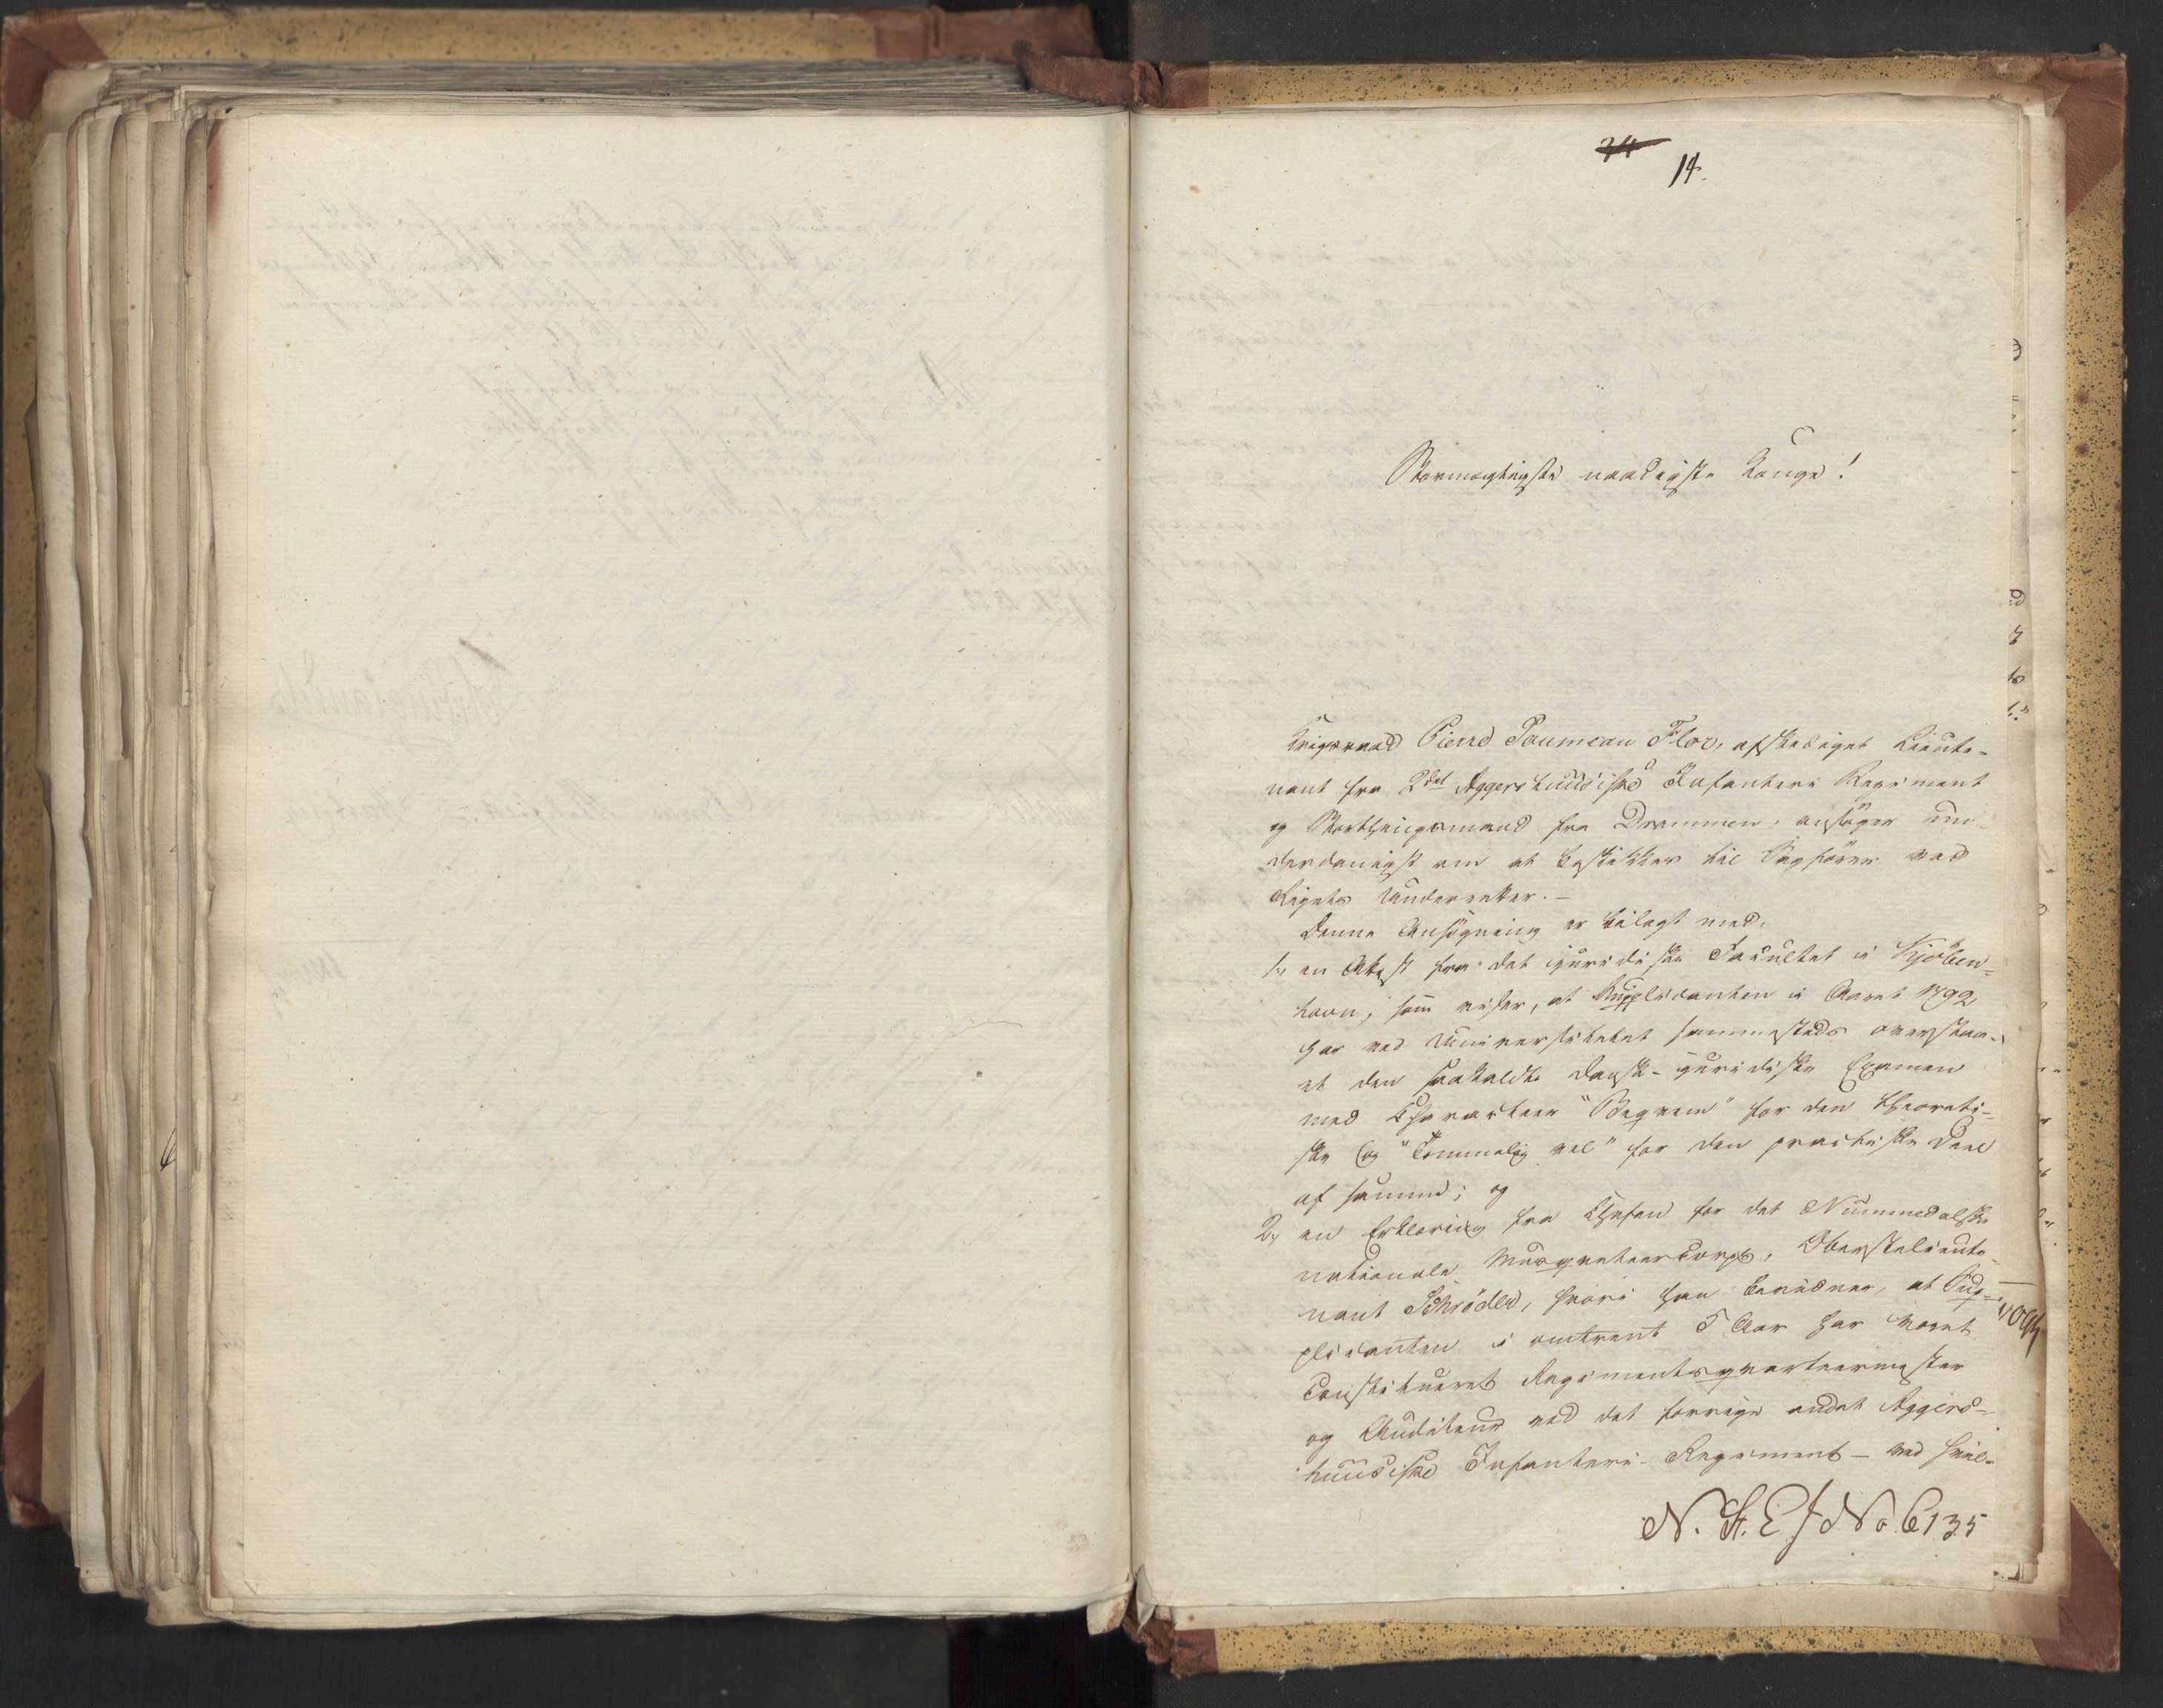 24
14.
Stormægtigste naadigste Konge!
Krigsraad Pierre Poumeau Flor, afskediget Lieute-
nant fra 2det Aggershuusiske Infanteri Regiment
og Storthingsmand fra Drammen, ansøger un-
derdanigst om at beskikkes til Sagfører ved
Rigets Underretter.-
Denne Ansøgning er bilagt med:
1, en Attest fra det juridiske Facultet i Kjøben-
havn, som viser, at Supplicanten i Aaret 1792
har ved Universitetet sammesteds overstaa-
et den saakaldte dansk-juridiske Examen
med Characteer "Beqvem" for den theoreti-
ske og "Temmelig vel" for den practiske Deel
af samme; og
2, en Erklæring fra Chefen for det Nummedalske
nationale Musqueteercorps, Oberstlieute-
nant Schrøder, hvori han bevidner, at Sup-
plicanten i omtrent 5 Aar har været
Constitueret Regimentsqvarteermester
og Auditeur ved det forrige andet Aggers-
huusiske Infanteri-Regiment - ved hvil-
N. St. E J No 6135